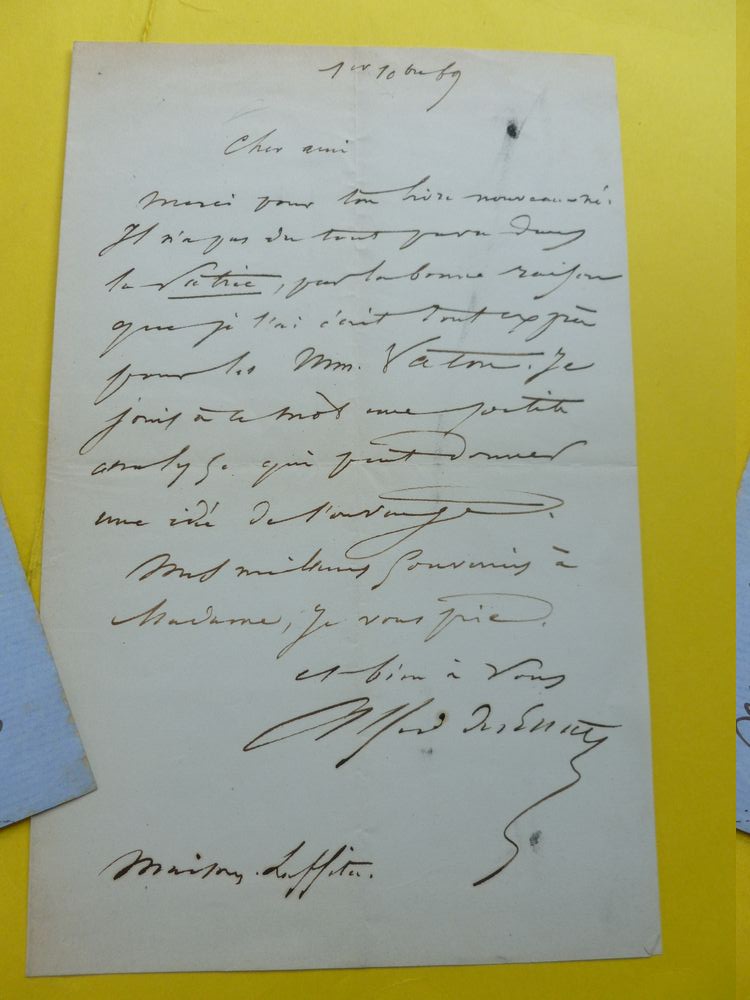 1er 10bre 69
Cher ami
Merci pour ton livre nouveau-né.
Il n'a pas du tout paru dans
la Patrie, par la bonne raison
que je l'ai écrit tout exprès
pour les Mm. Vaton. Je
joins à ce mot une petite
analyse qui peut donner
une idée de l'ouvrage.
Mes meilleurs souvenirs à
Madame, je vous prie.
et bien à vous
Alfred des Essarts
Maisons-Laffitte.